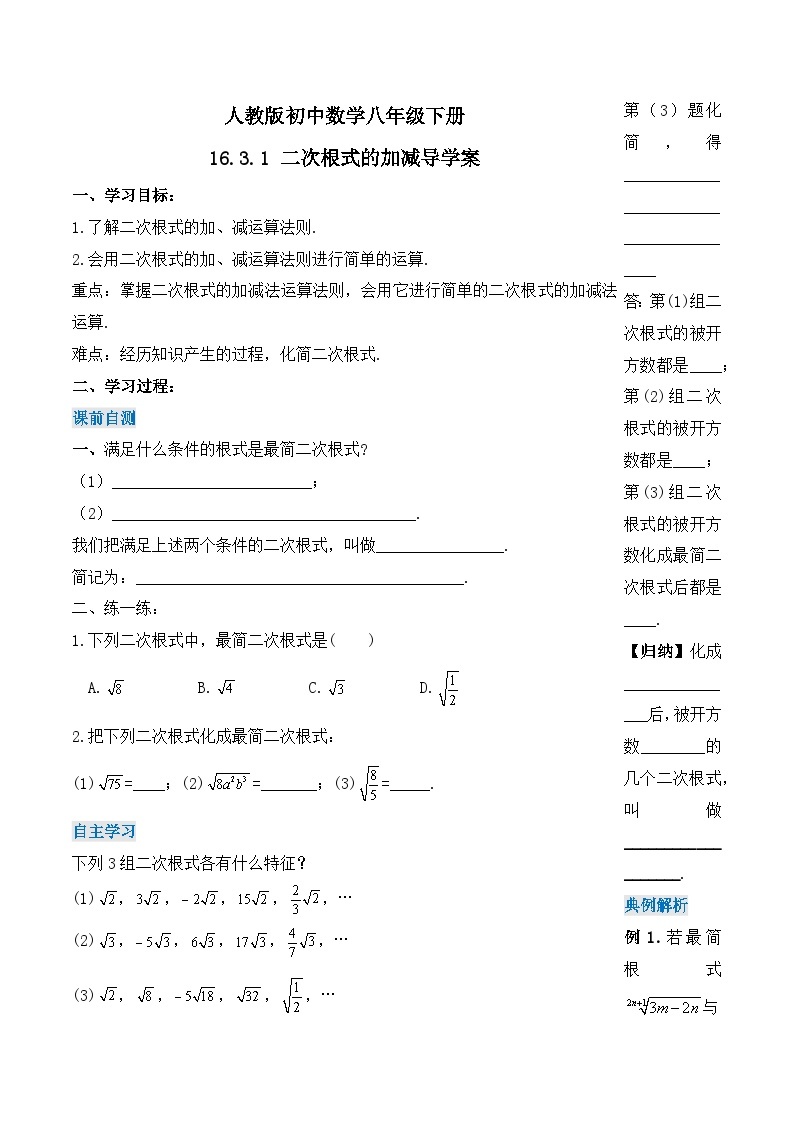 人教版初中数学八年级下册
16.3.1 二次根式的加减导学案
一、学习目标:
1.了解二次根式的加、减运算法则.
2.会用二次根式的加、减运算法则进行简单的运算.
重点:掌握二次根式的加减法运算法则,会用它进行简单的二次根式的加减法
运算.
难点:经历知识产生的过程,化简二次根式.
二、学习过程:
课前自测
一、满足什么条件的根式是最简二次根式?
(1)_________________________;
(2)______________________________________.
我们把满足上述两个条件的二次根式,叫做________________.
简记为:_________________________________________.
二、练一练:
1.下列二次根式中,最简二次根式是(  )
A. √8 B. √4 C. √3 D. √(1/2)
2.把下列二次根式化成最简二次根式:
(1)√75=____;(2)√(8a²b³)=_______;(3)√(8/5)=_____.
自主学习
下列3组二次根式各有什么特征?
(1)√2,3√2,-2√2,15√2,2/3√2,…
(2)√3,-5√3,6√3,17√3,4/7√3,…
(3)√2,√8,-5√18,√32,√(1/2),…
第(3)题化
简,得
____________
____________
____________
____
答:第(1)组二
次根式的被开
方数都是____;
第(2)组二次
根式的被开方
数都是____;
第(3)组二次
根式的被开方
数化成最简二
次根式后都是
____.
【归纳】化成
____________
___后,被开方
数________的
几个二次根式,
叫做
____________
_______.
典例解析
例1.若最简
根式
²ⁿ⁺¹√(3m-2n)与